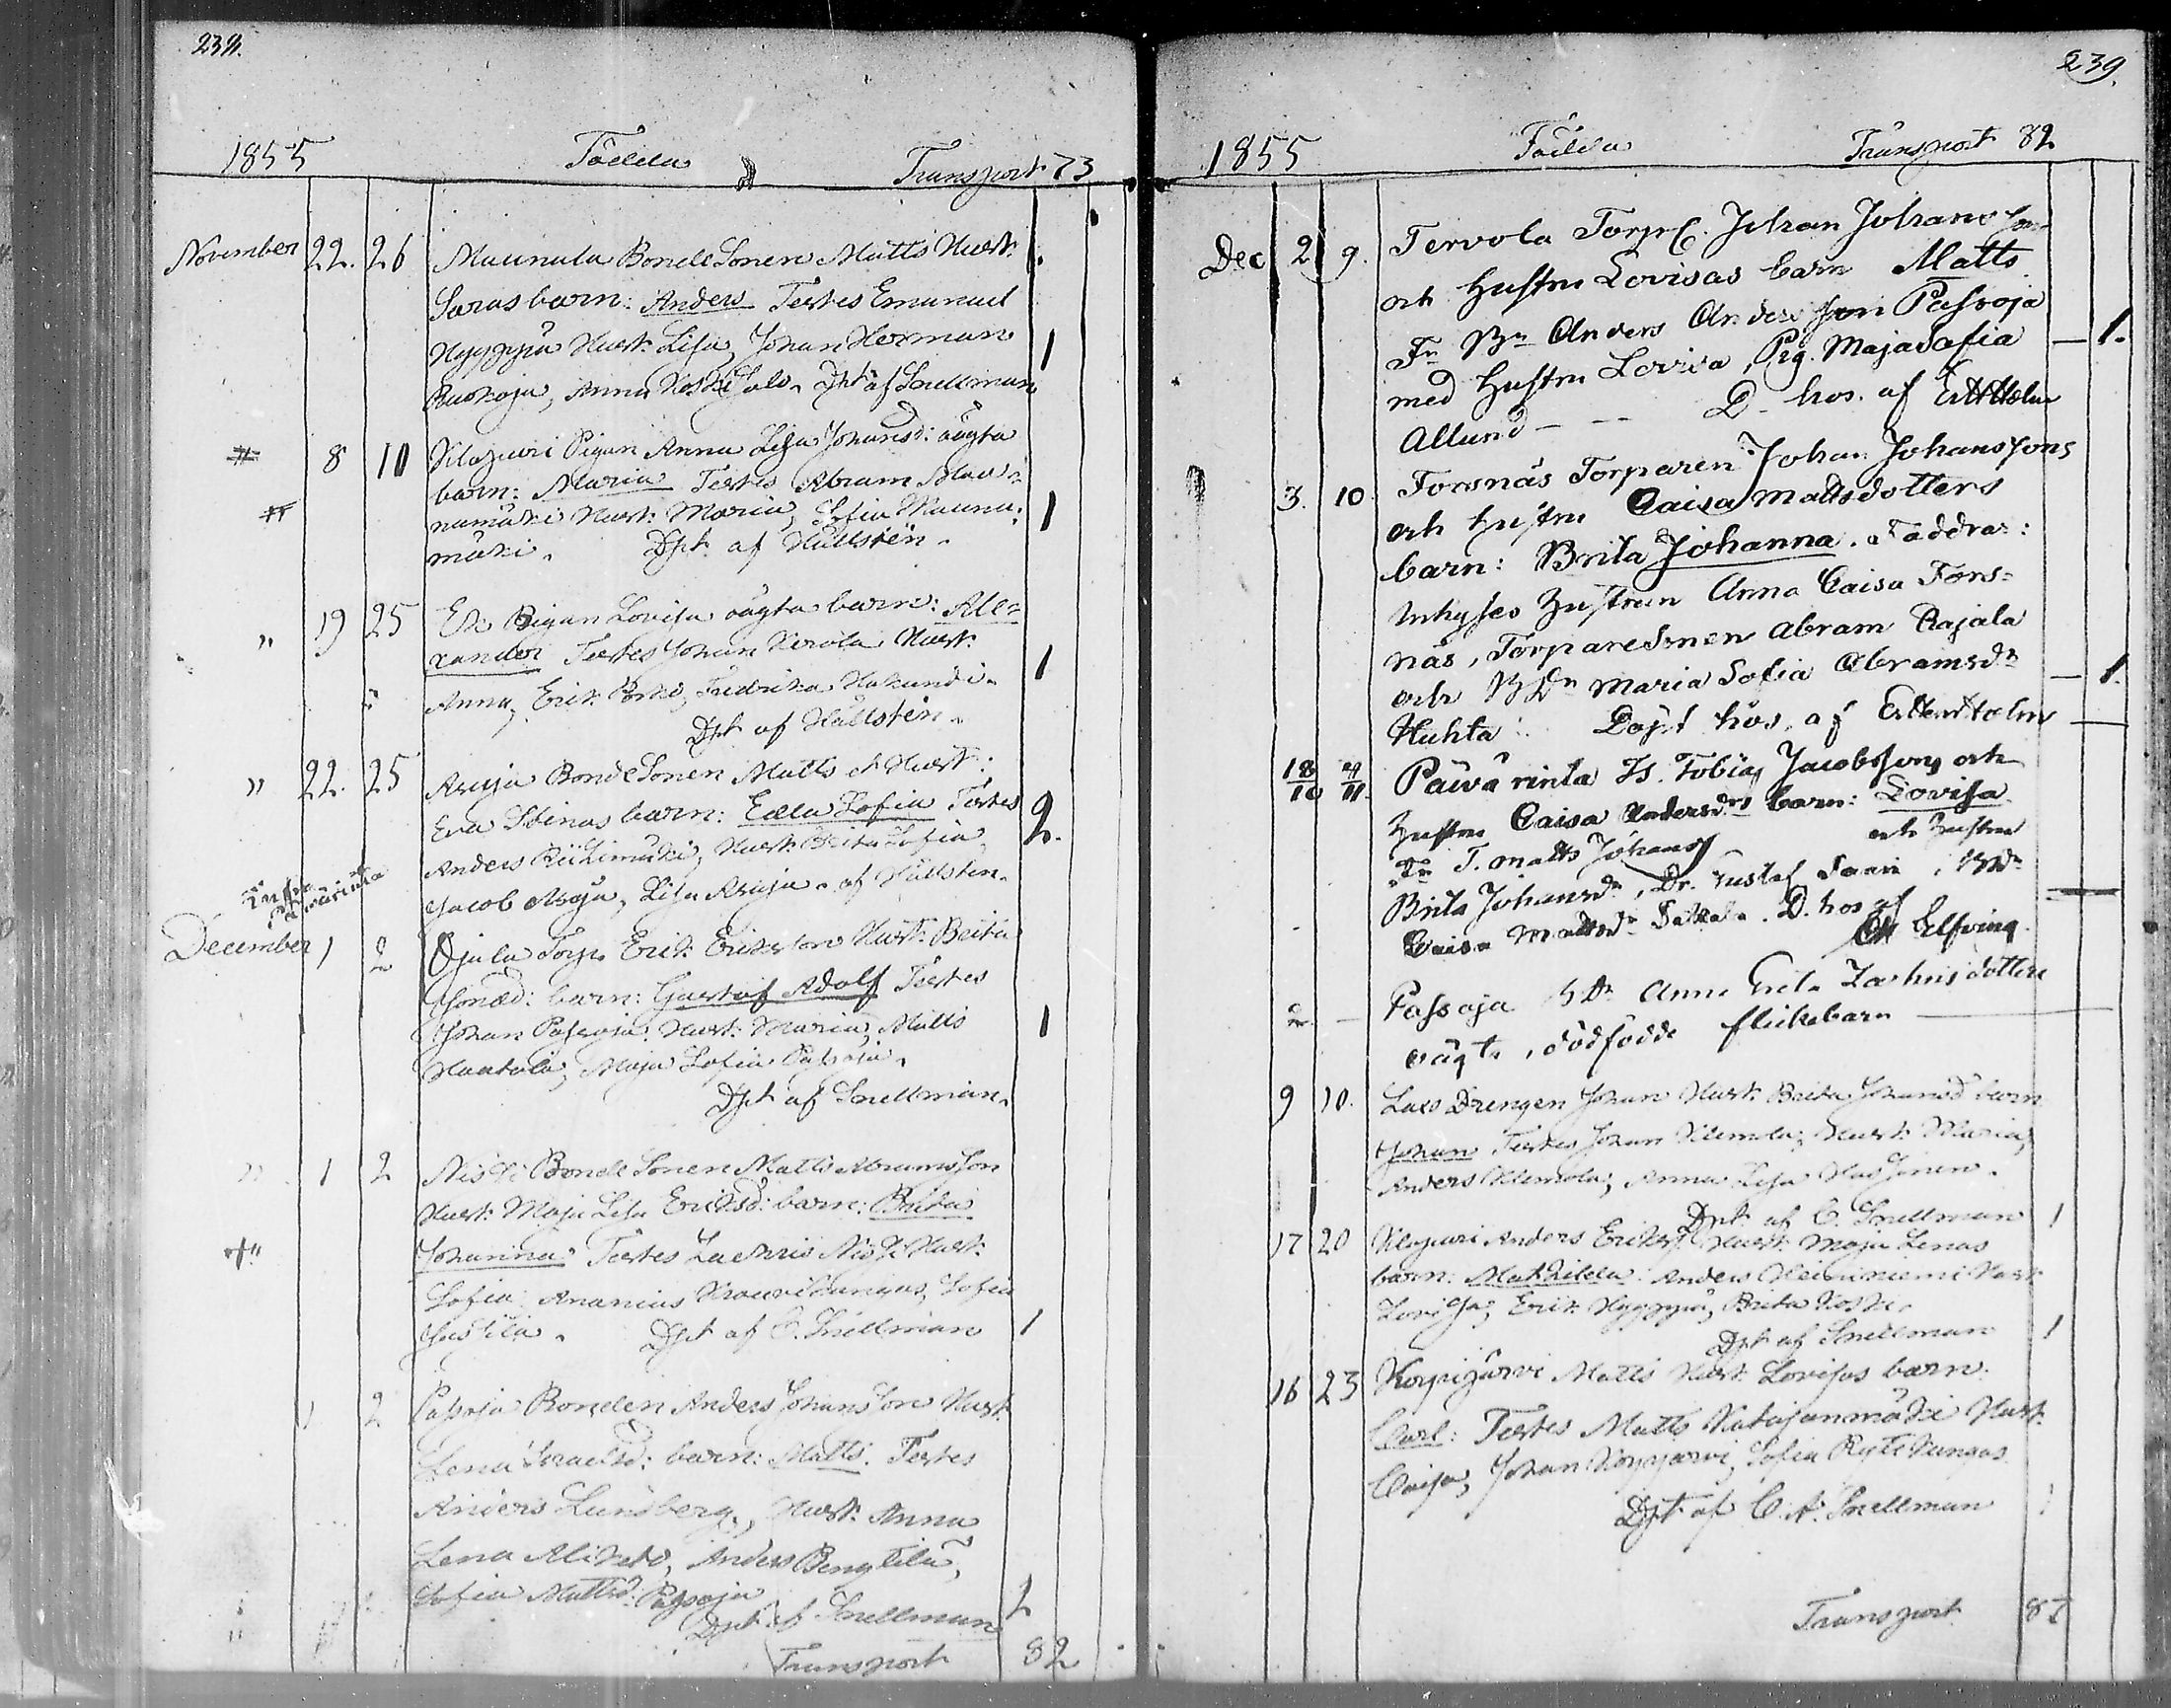 238.
1855 Födda Transport 73
November 22. 26 Maunula BondeSonen Matts Hust:
Saras barn: Anders Testes Emanuel
Hyyppä Hust: Lisa, Johan Herman 1
Ruokoja, Anna Koski Dpt af Snellman
8 10 Pigan Anna Lisa Johansd: oägta
barn: Maria Testes Abram Mau=
numäki Hust: Maria, Sofia Mauna= 1
mäki. Dpt. af Hällsten.
" 19 25 Pigan Lovisa oägta barn: Ale=
xander Testes Johan Kerola Hust:
Anna, Erik Fredrika Hakundi. 1
Dpt af Hällsten.
" 22. 25 Asuja BondeSonen Matts Hust:
Eva Stinas barn: Edla Sofia Testes 2.
Anders Riihimäki, Hust: Brita Sofia,
Jacob Asuja, Lisa Asuja. af Hällsten.
December 1 2 Ojala Torp. Erik Eriksson Hust: Brita
barn: Gustaf Adolf Testes
Johan Passoja Hust: Maria, Matts 1
Hautala, Maja Sofia Passoja.
Dpt af Snellman.
" 1 2 Niska BondeSonen Matts Abramsson
Hust: Maja Lisa Eriksd: barn: Brita
Johanna Testes Zachris Niska Hust:
Sofia Ananias Sofia
Dpt af C. Snellman 1
1 2 Passoja Bonden Anders Johansson Hust:
Lena Israelsd: barn: Matts. Testes
Anders Lundberg, Hust: Anna
Lena Anders Bengtilä,
Sofia Mattsd: Passoja 1
Dpt af Snellman
Transport 82
239.
1855 Födda Transport 82
Dec 2 9. Tervola Torp. Johan Johansson
och Hustru Lovisas barn Matts
Fr Bn Anders Andersson Passoja
med Hustru Lovisa, Pig. Maja Sofia — 1.
Allund — D. hos. af
3. 10. Forsnäs Torparen Johan Johanssons
och Hustru Caisa Mattsdotters
barn: Brita Johanna. Faddrar:
Inhyses Hustrun Anna Caisa Fors=
näs, Torparesonen Abram Rajala
och BDr Maria Sofia Abramsdr — 1.
Huhta. Döpt hos. af
18/10 Päivärinta Is. Tobias Jacobssons och
Hustru Caisa Andersdrs barn: Lovisa.
T. Matts Johanss och Hustru
Brita Johansdr, Dr. Gustaf Saari, BDr
Caisa Mattsdr D. hos af
Elfving
Passoja BDr Anna Greta Zachrisdotters
oägta, dödfödde flickebarn —
9 10. Laes Drengen Johan Hust: Brita Johansd barn
Johan Testes Johan Klemola, Hust: Maria,
Anders Klemola, Anna Lisa
Dpt. af C. Snellman 1
17 20 Anders Erikss Hust: Maja Lenas
barn: Mathilda Anders Heininiemi Hust:
Lovisa, Erik Hyyppä, Brita Koski.
Dpt af Snellman 1
16 23 Korpijärvi Matts Hust: Lovisas barn:
Carl: Testes Matts Katajanmäki Hust:
Caisa, Johan Korpijärvi, Sofia Rytikangas
Dpt af C. A. Snellman 1
Transport 87